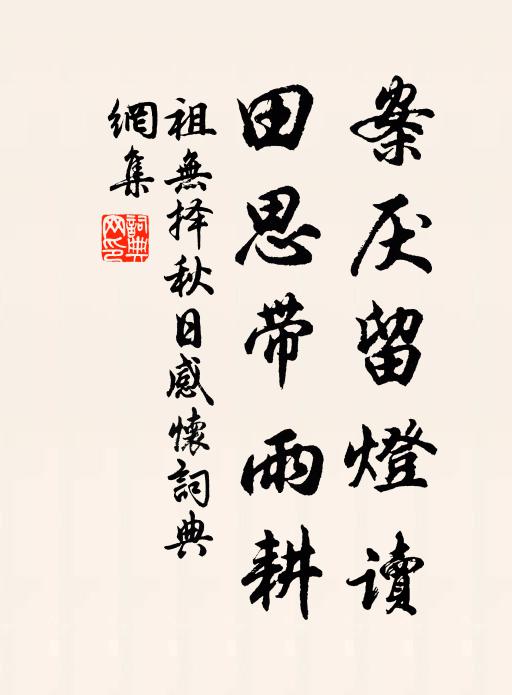 案厌留燈讀
田思带雨耕
祖無择秋日感懷詞典
網集
詞典網印